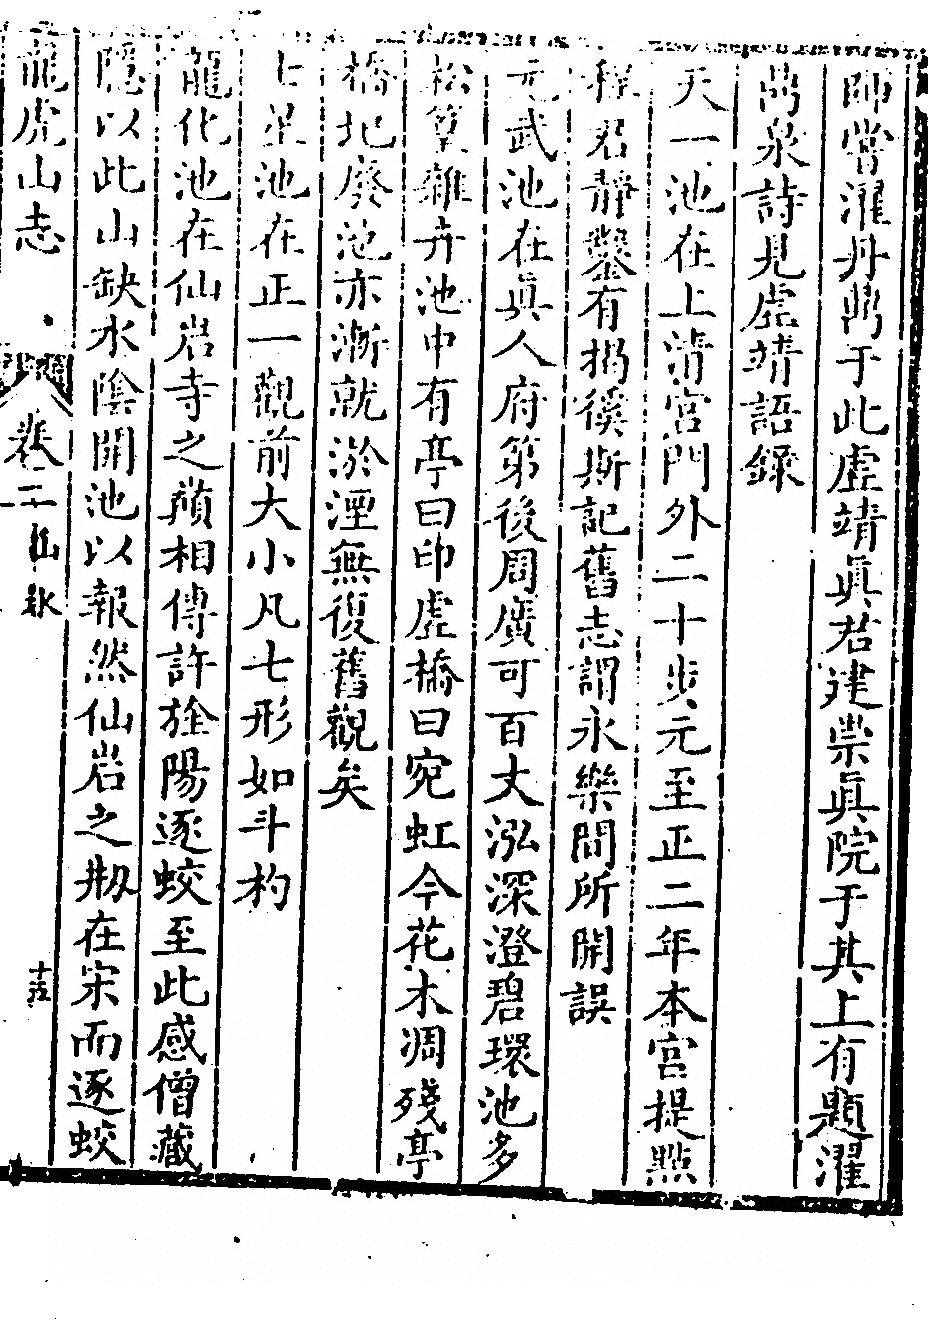 師嘗濯丹鼎于此虛靖眞君建崇眞院于其上有題濯
鼎泉詩見虛靖語錄
天一池在上清宮門外二十步元至正二年本宮提點
程君靜鑿有揭徯斯記舊志謂永樂間所開誤
元武池在眞人府第後周廣可百丈泓深澄碧環池多
松篁雜卉池中有亭曰印虛橋曰宛虹今花木凋殘亭
橋圮廢池亦漸就淤湮無復舊觀矣
七星池在正一觀前大小凡七形如斗杓
龍化池在仙岩寺之前相傳許旌陽逐蛟至此感僧藏
隱以此山缺水陰開池以報然仙岩之剏在宋而逐蛟
龍虎山志
卷二 山水